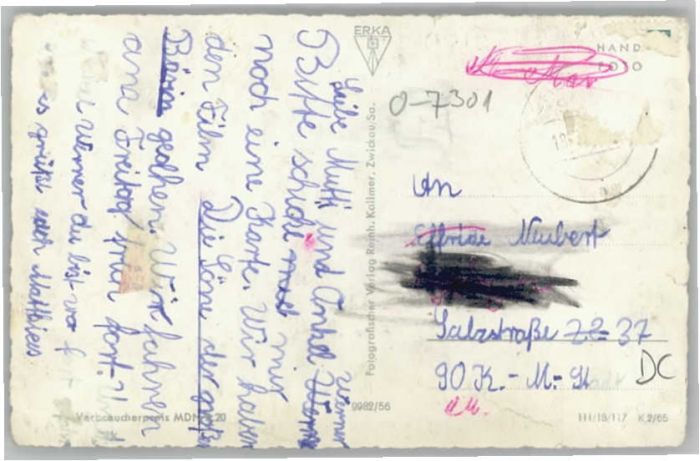 Liebe Mutti und Onkel Werner
Bitte schicke mir
noch eine Karte. Wir haben
den Film Die Söne der großen
Bärin gesehen. Wir fahren
Freitag früh fort.
Werner du bist
es grüßt euch Matthias
ERKA
HAND
FOTO
O-7301
An
Elfriede Neubert
Salzstraße 37
90 K.-M.-St
DC
Fotografischer Verlag Reinh. Kallmer, Zwickau/Sa.
9982/56
Verbraucherpreis MDN 0,20
III/18/117 K 2/65